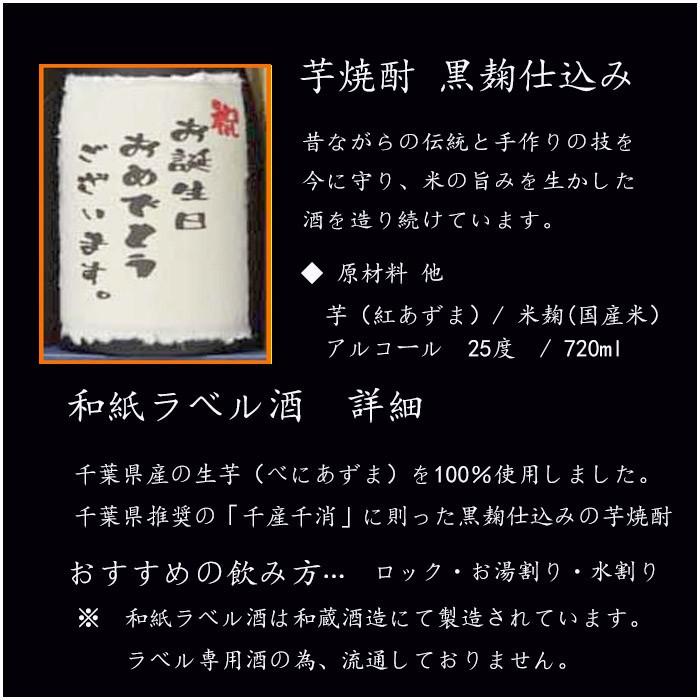 祝
お誕生日
おめでとう
ございます。
芋焼酎 黒麹仕込み
昔ながらの伝統と手作りの技を
今に守り、米の旨みを生かした
酒を造り続けています。
◆ 原材料 他
芋（紅あずま）/ 米麹(国産米)
アルコール 25度 / 720ml
和紙ラベル酒 詳細
千葉県産の生芋（べにあずま）を100%使用しました。
千葉県推奨の「千産千消」に則った黒麹仕込みの芋焼酎
おすすめの飲み方… ロック・お湯割り・水割り
※ 和紙ラベル酒は和蔵酒造にて製造されています。
ラベル専用酒の為、流通しておりません。